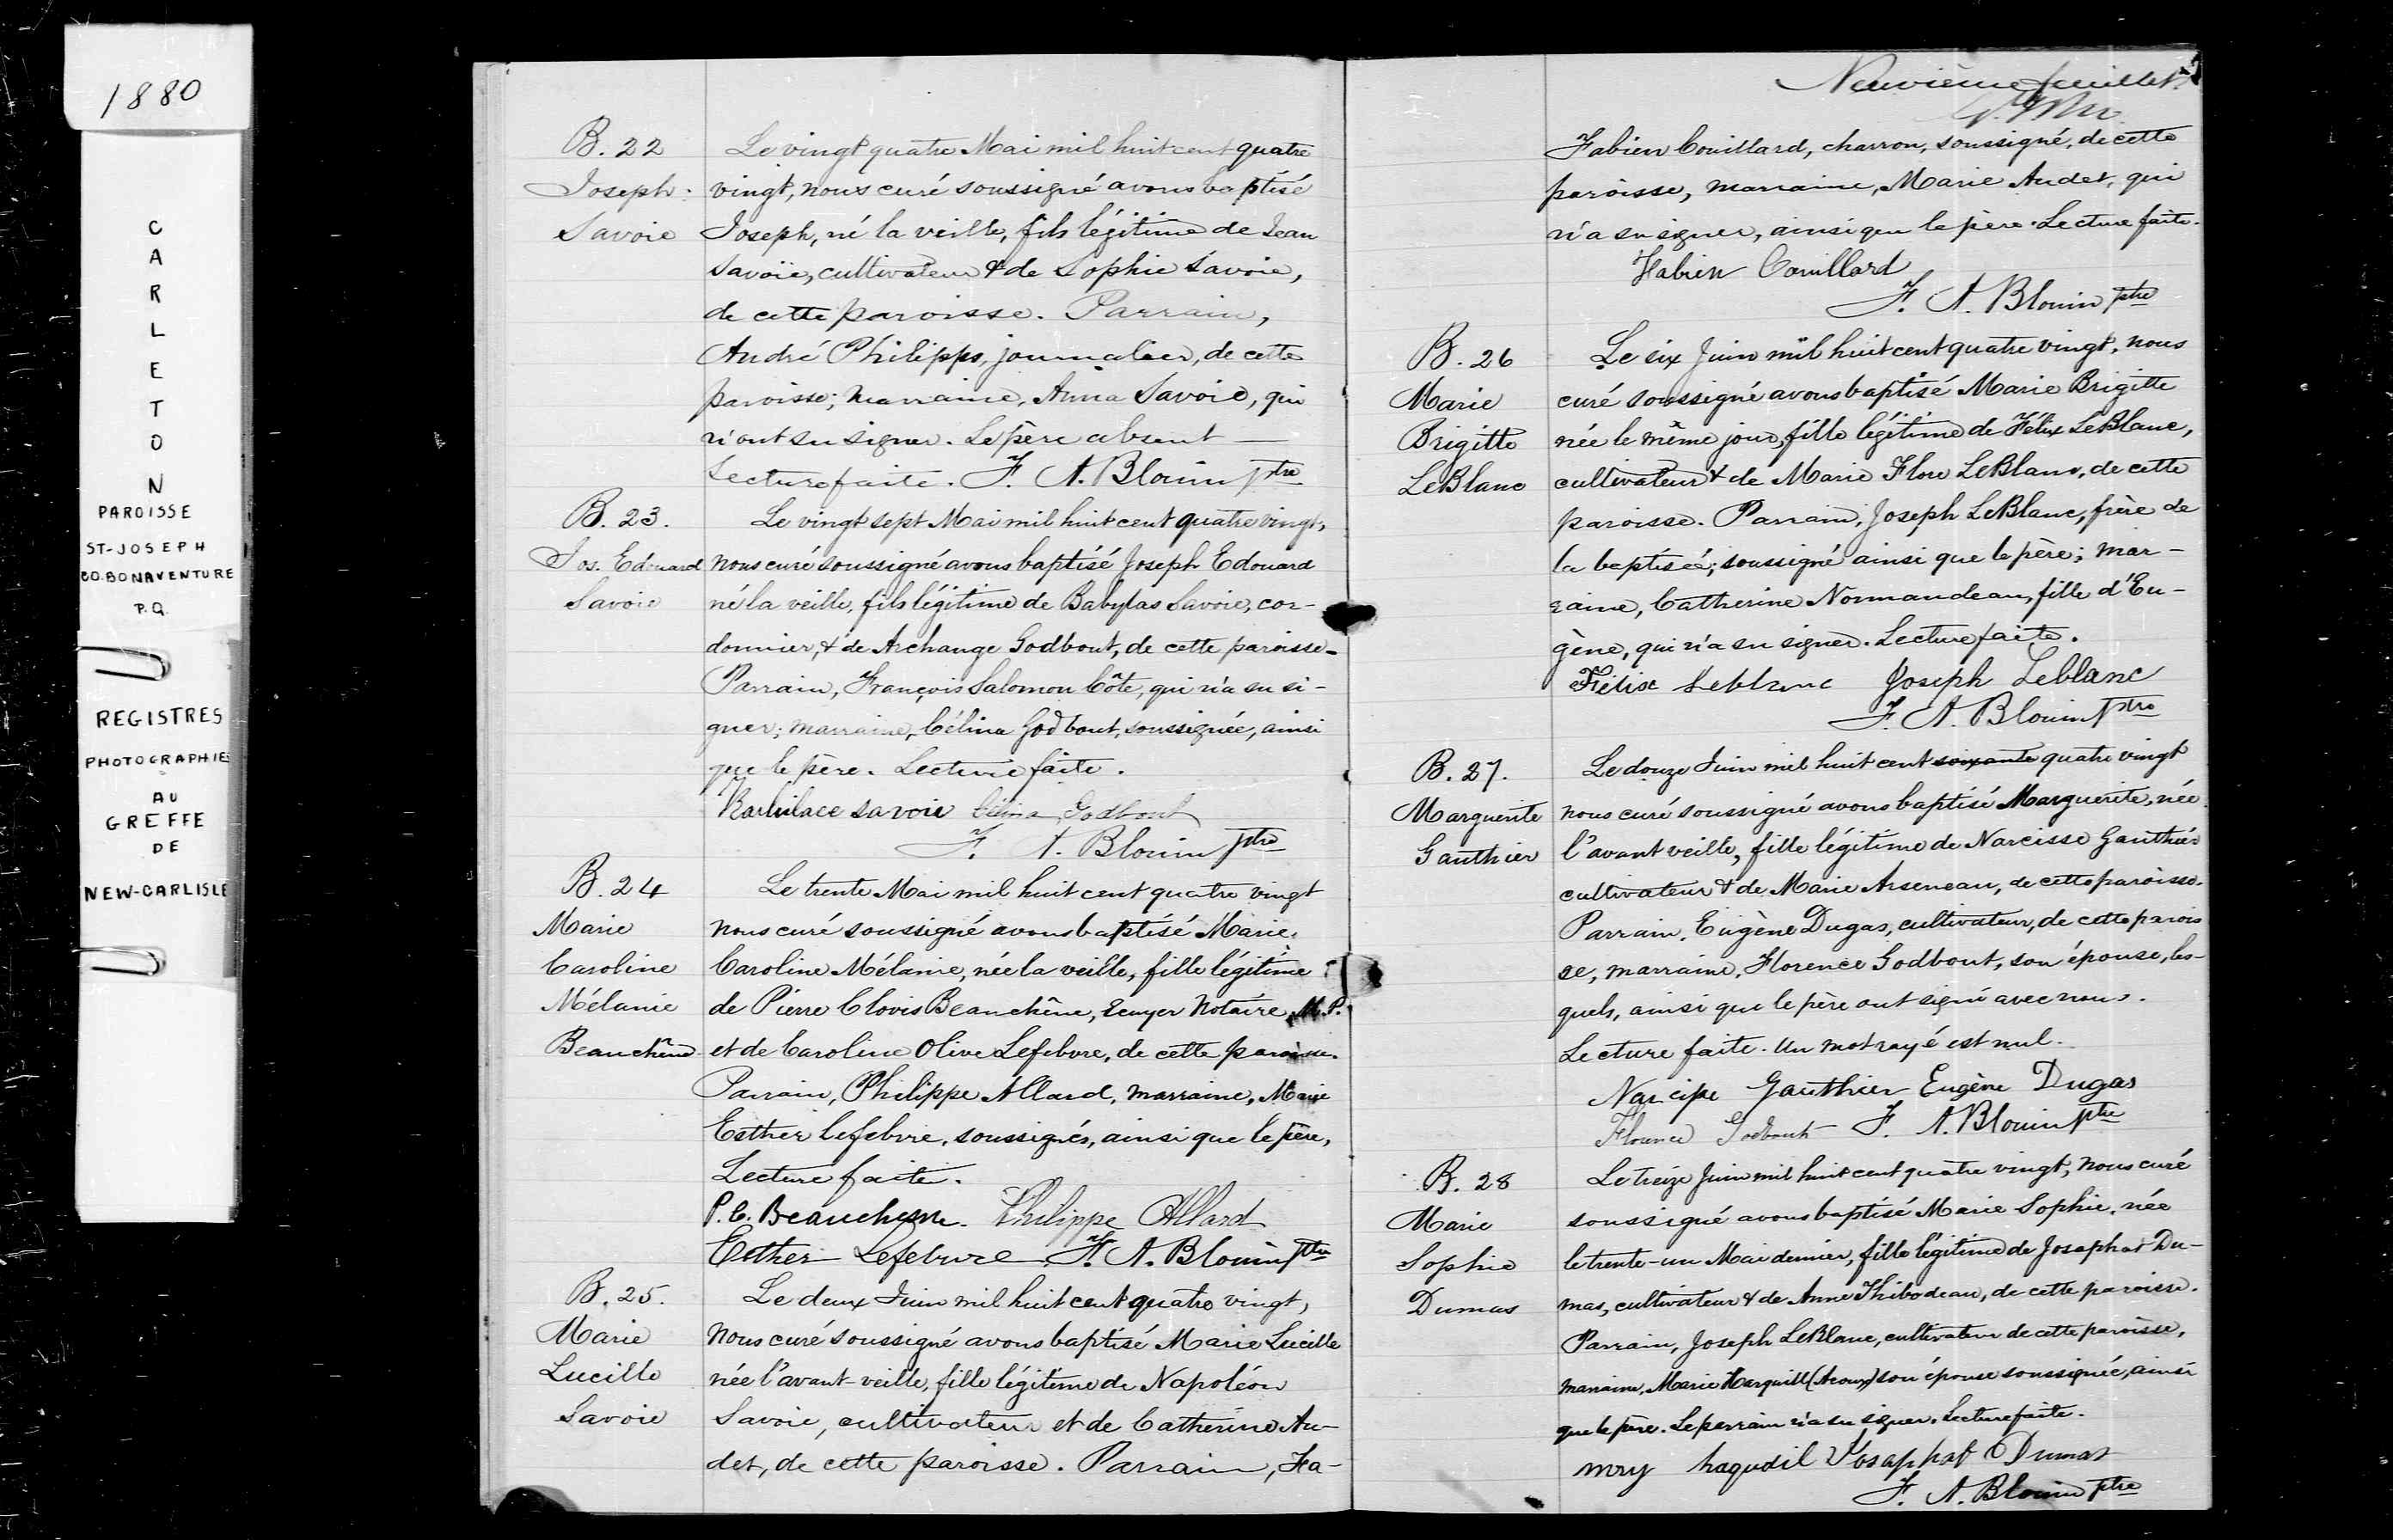 1880
CARLETON
PAROISSE
ST-JOSEPH
CO. BONAVENTURE
P.Q.
REGISTRES
PHOTOGRAPHIE
AU
GREFFE
DE
NEW-CARLISLE
B. 22
Joseph
Savoie
Le vingt quatre Mai mil huit cent quatre
vingt, nous curé soussigné avons baptisé
Joseph, né la veille, fils légitime de Jean
Savoie, cultivateur & de Sophie Savoie,
de cette paroisse. Parrain,
André Philipps, journalier, de cette
paroisse; marraine, Anna Savoie, qui
n'ont su signer. Le père absent —
Lecture faite. F. A. Blouin ptre
B. 23.
Jos. Edouard
Savoie
Le vingt sept Mai mil huit cent quatre vingt,
nous curé soussigné avons baptisé Joseph Edouard
né la veille, fils légitime de Babylas Savoie, cor-
donnier, & de Archange Godbout, de cette paroisse.
Parrain, François Salomon Côté, qui n'a su si-
gner; marraine, Célina Godbout, soussignée, ainsi
que le père. Lecture faite.
Barbilace savoie Célina Godbout
F. A. Blouin ptre
B. 24
Marie
Caroline
Mélanie
Beauchêne
Le trente Mai mil huit cent quatre vingt
nous curé soussigné avons baptisé Marie
Caroline Mélanie, née la veille, fille légitime
de Pierre Clovis Beauchêne, Ecuyer Notaire, M.P.
et de Caroline Olive Lefebvre, de cette paroisse.
Parrain, Philippe Allard, marraine, Marie
Esther Lefebvre, soussignés, ainsi que le père,
Lecture faite.
P. C. Beauchesne Philippe Allard
Esther Lefebvre F. A. Blouin ptre
B. 25.
Marie
Lucille
Savoie
Le deux Juin mil huit cent quatre vingt,
nous curé soussigné avons baptisé Marie Lucille
née l'avant-veille, fille légitime de Napoléon
Savoie, cultivateur et de Catherine Au-
det, de cette paroisse. Parrain, Fa-
Neuvième feuillet
Fabien Couillard, charron, soussigné, de cette
paroisse, marraine, Marie Audet, qui
n'a su signer, ainsi que le père. Lecture faite.
Fabien Couillard
F. A. Blouin ptre
B. 26
Marie
Brigitte
LeBlanc
Le six Juin mil huit cent quatre vingt, nous
curé soussigné avons baptisé Marie Brigitte
née le même jour, fille légitime de Félix LeBlanc,
cultivateur & de Marie Flore LeBlanc, de cette
paroisse. Parrain, Joseph LeBlanc, frère de
la baptisée; soussigné ainsi que le père; mar-
raine, Catherine Normandeau, fille d'Eu-
gène, qui n'a su signer. Lecture faite.
Félix Leblanc Joseph Leblanc
F. A. Blouin ptre
B. 27.
Marguerite
Gauthier
Le douze Juin mil huit cent soixante quatre vingt
nous curé soussigné avons baptisé Marguerite, née
l'avant veille, fille légitime de Narcisse Gauthier
cultivateur & de Marie Arseneau, de cette paroisse.
Parrain, Eugène Dugas, cultivateur, de cette parois
se, marraine, Florence Godbout, son épouse, les-
quels, ainsi que le père ont signé avec nous.
Lecture faite. Un mot rayé est nul.
Narcisse Gauthier Eugène Dugas
Florence Godbout F. A. Blouin ptre
B. 28
Marie
Sophie
Dumas
Le treize Juin mil huit cent quatre vingt, nous curé
soussigné avons baptisé Marie Sophie, née
le trente-un Mai dernier, fille légitime de Josaphat Du-
mas, cultivateur & de Anne Thibodeau, de cette paroisse.
Parrain, Joseph LeBlanc, cultivateur de cette paroisse,
marraine, Marie son épouse soussignée, ainsi
que le père. Le parrain n'a su signer. Lecture faite.
mry haquoil Josaphat Dumas
F. A. Blouin ptre